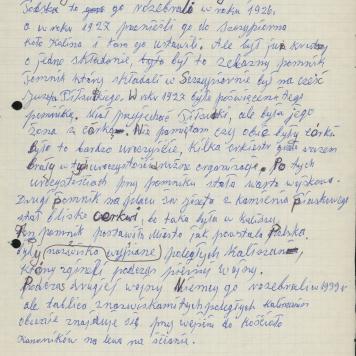 Polska to go rozebrali w roku 1926.
a w roku 1927 przenieśli go do Szczypiorna
koło Kalisza i tam go ustawili. Ale był już krutszy
o jedno składanie, to był to żelazny pomnik
Pomnik który składali w Szczypiornie był na cześć
Juzefa Piłsudkiego. W roku 1927 było poświęcenie tego
pomnika. Miał przyjechać Piłsucki, ale była jego
żona z córką. Nie pamiętam czy obie były córki
Było to bardzo uroczyście, kilka orkiestr grało
brały w tyj uroczystości rużne organizacje. Po tych
uroczystościach przy pomniku stała warta wojskowa.
Drugi pomnik na placu św Juzefa z kamienia Piaskowego
stał blisko cerkwi, bo taka była w Kaliszu.
Ten pomnik postawiło Miasto jak powstała Polska,
były nazwiska wypisane poległych Kaliszan,
którzy zgineli podczas pierszej wojny.
Podczas drugiej wojny Niemcy go rozebrali w 1939 r
ale tablica z nazwiskami tych poległych kaliszanów
obecnie znajduje się przy wejściu do kościoła
Kanoników na lewo na ścianie.